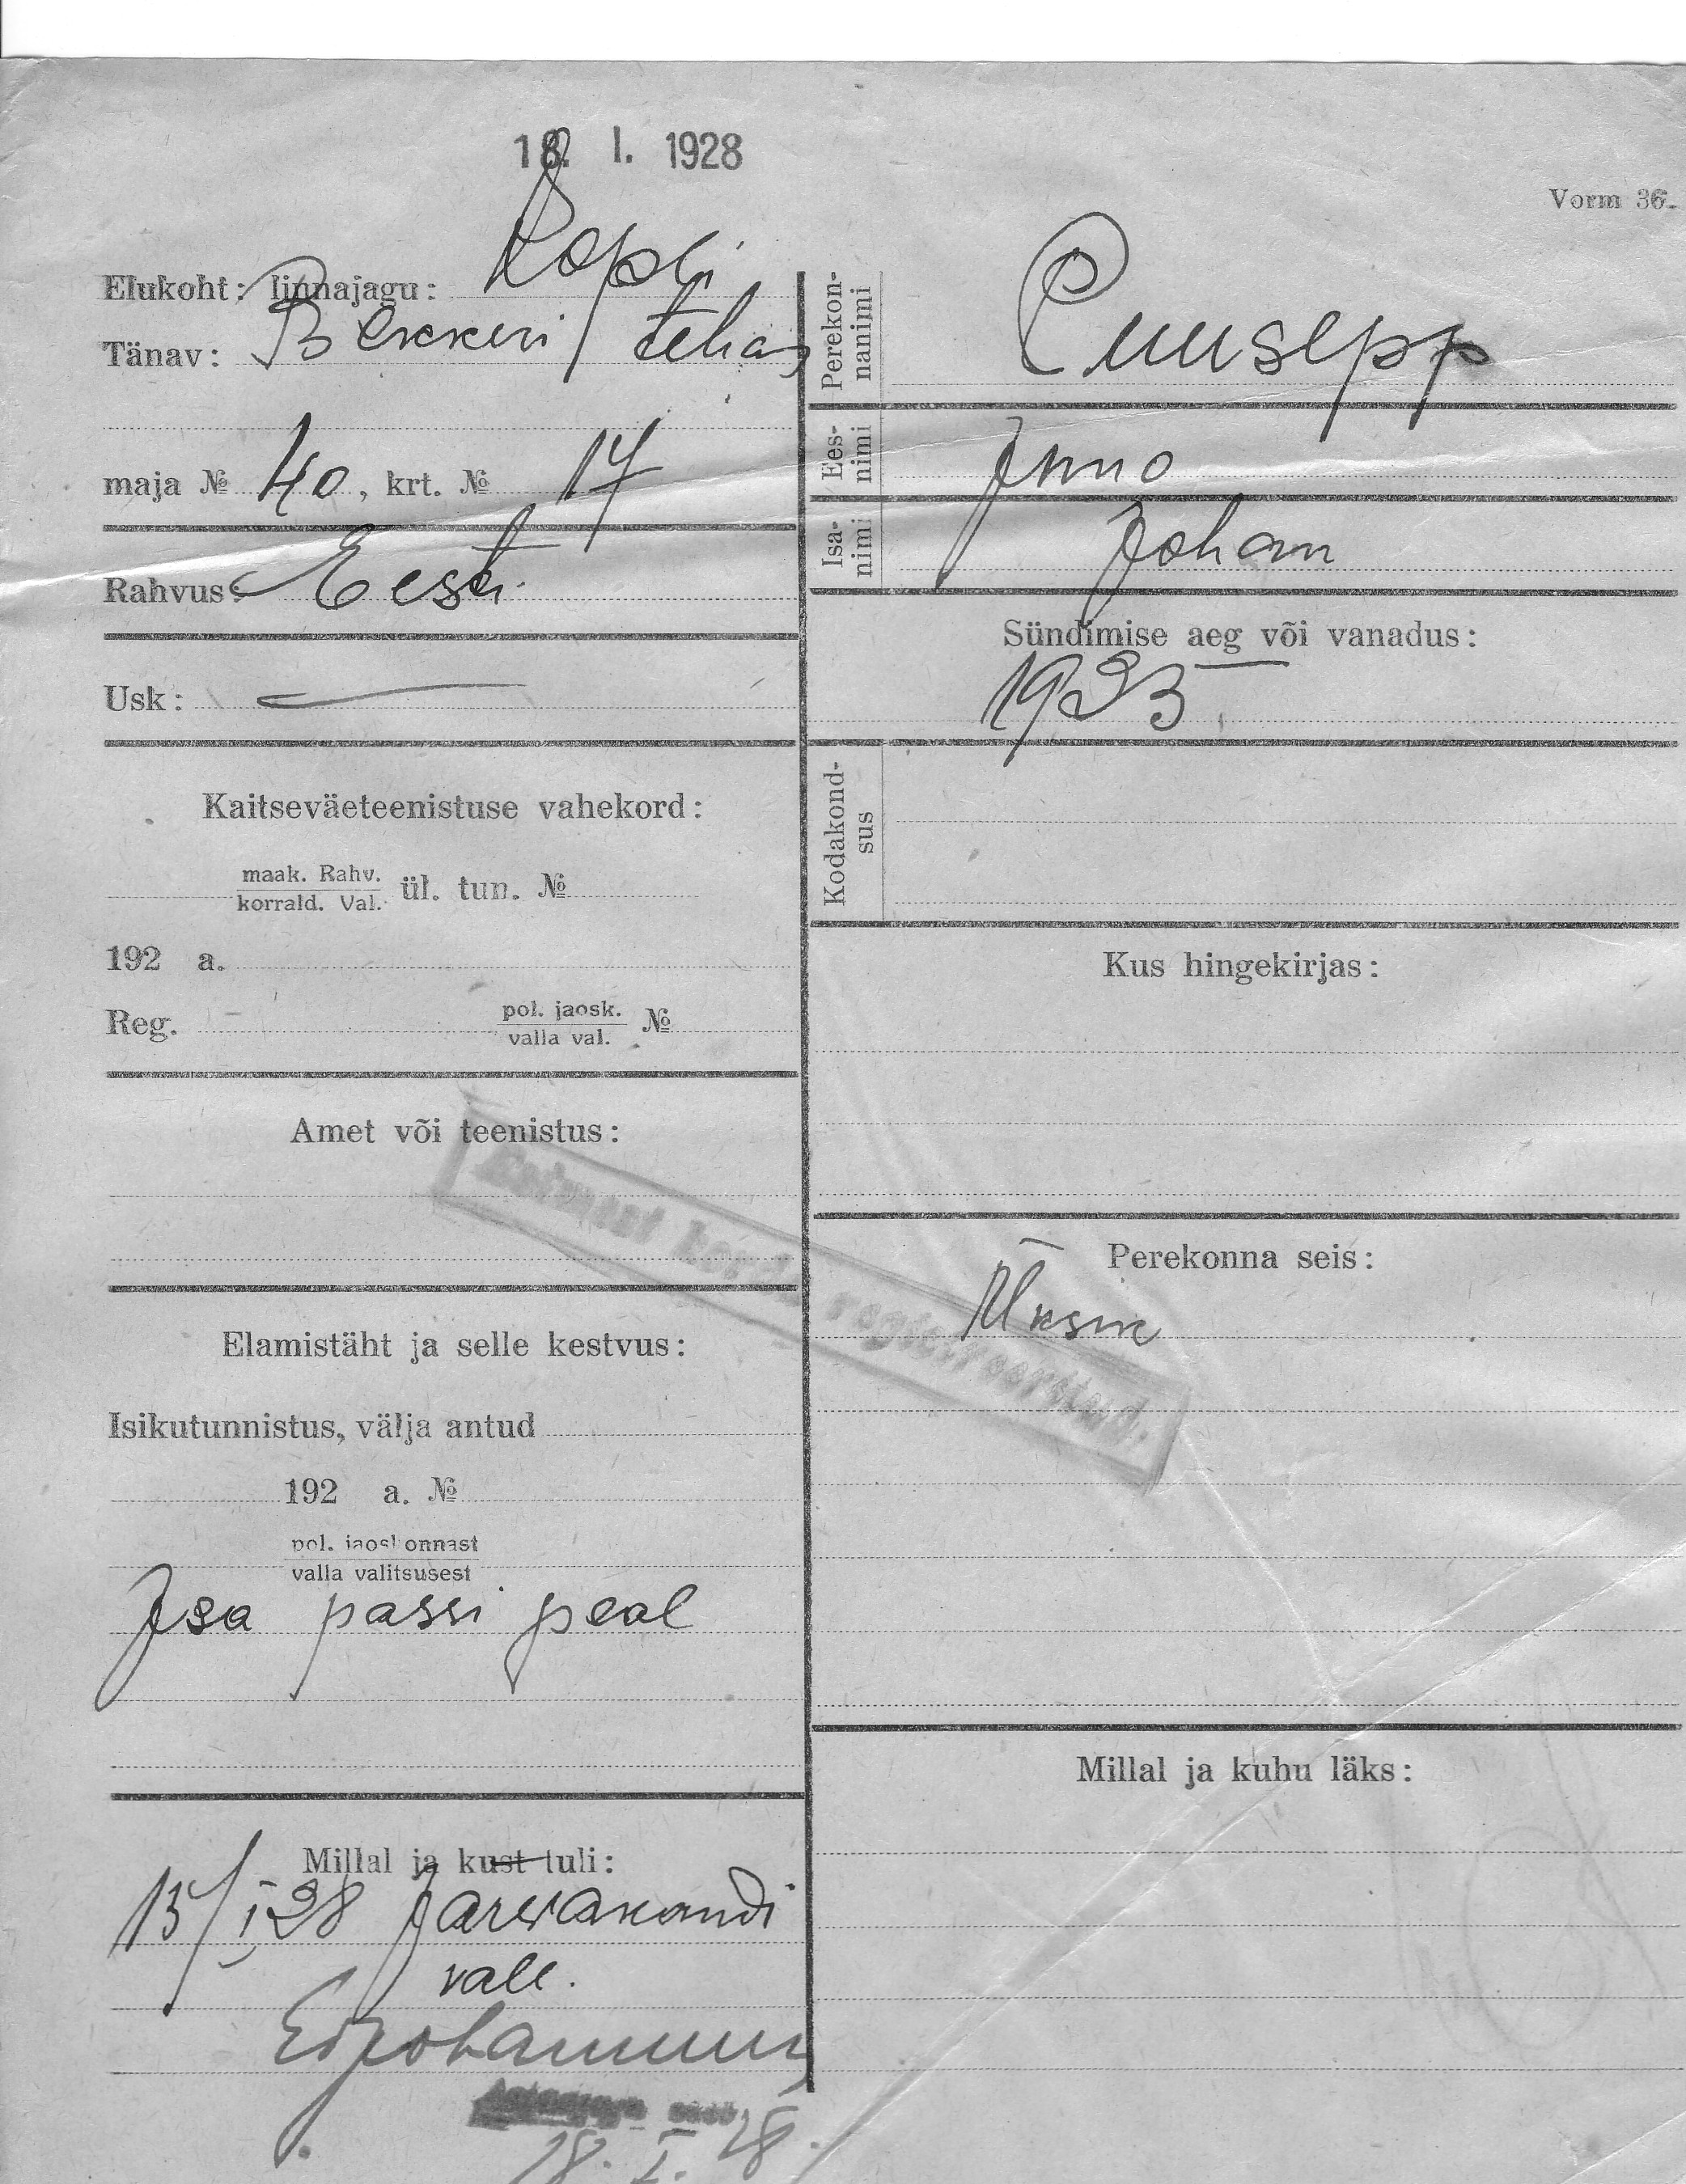 18. I. 1928
Vorm 36.
Elukoht: linnajagu: Kopli
Tänav: Bekkeri tehas
maja № 40, krt. № 17
Rahvus: Eesti
Usk: —
Kaitseväeteenistuse vahekord:
maak. Rahv.
korrald. Val. ül. tun. №
192 a.
Reg. pol. jaosk.
valla val. №
Amet või teenistus:
Elamistäht ja selle kestvus:
Isikutunnistus, välja antud
192 a. №
pol. jaoskonnast
valla valitsusest
Isa passi peal
Millal ja kust tuli:
15/I 28 Jarvakandi
vall.
18. I. 28.
Perekon-
nanimi
Puusepp
Ees-
nimi
Isa-
nimi Johan
Sündimise aeg või vanadus:
1923
Kodakond-
sus
Kus hingekirjas:
Perekonna seis:
Üksik
registreeritud.
Millal ja kuhu läks: